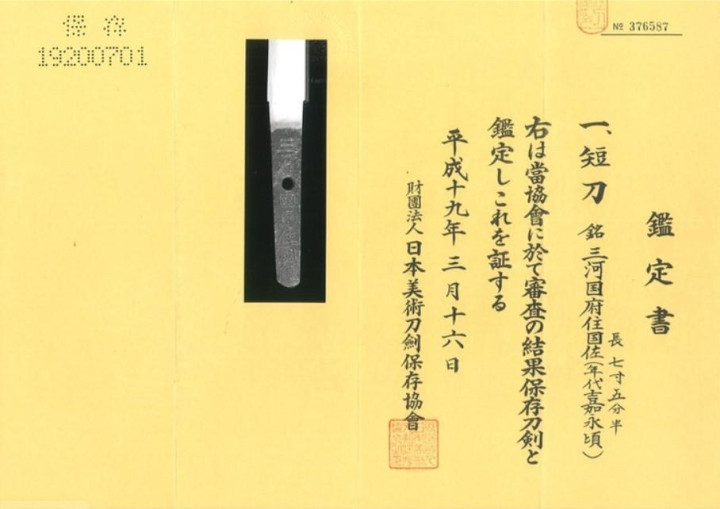 № 376587
鑑定書
一、短刀 銘 三河国府住国佐(年代嘉永頃)
長七寸五分半
右は當協會に於て審査の結果保存刀剣と
鑑定しこれを証する
平成十九年三月十六日
財團法人 日本美術刀劍保存協會
保存
19200701
三